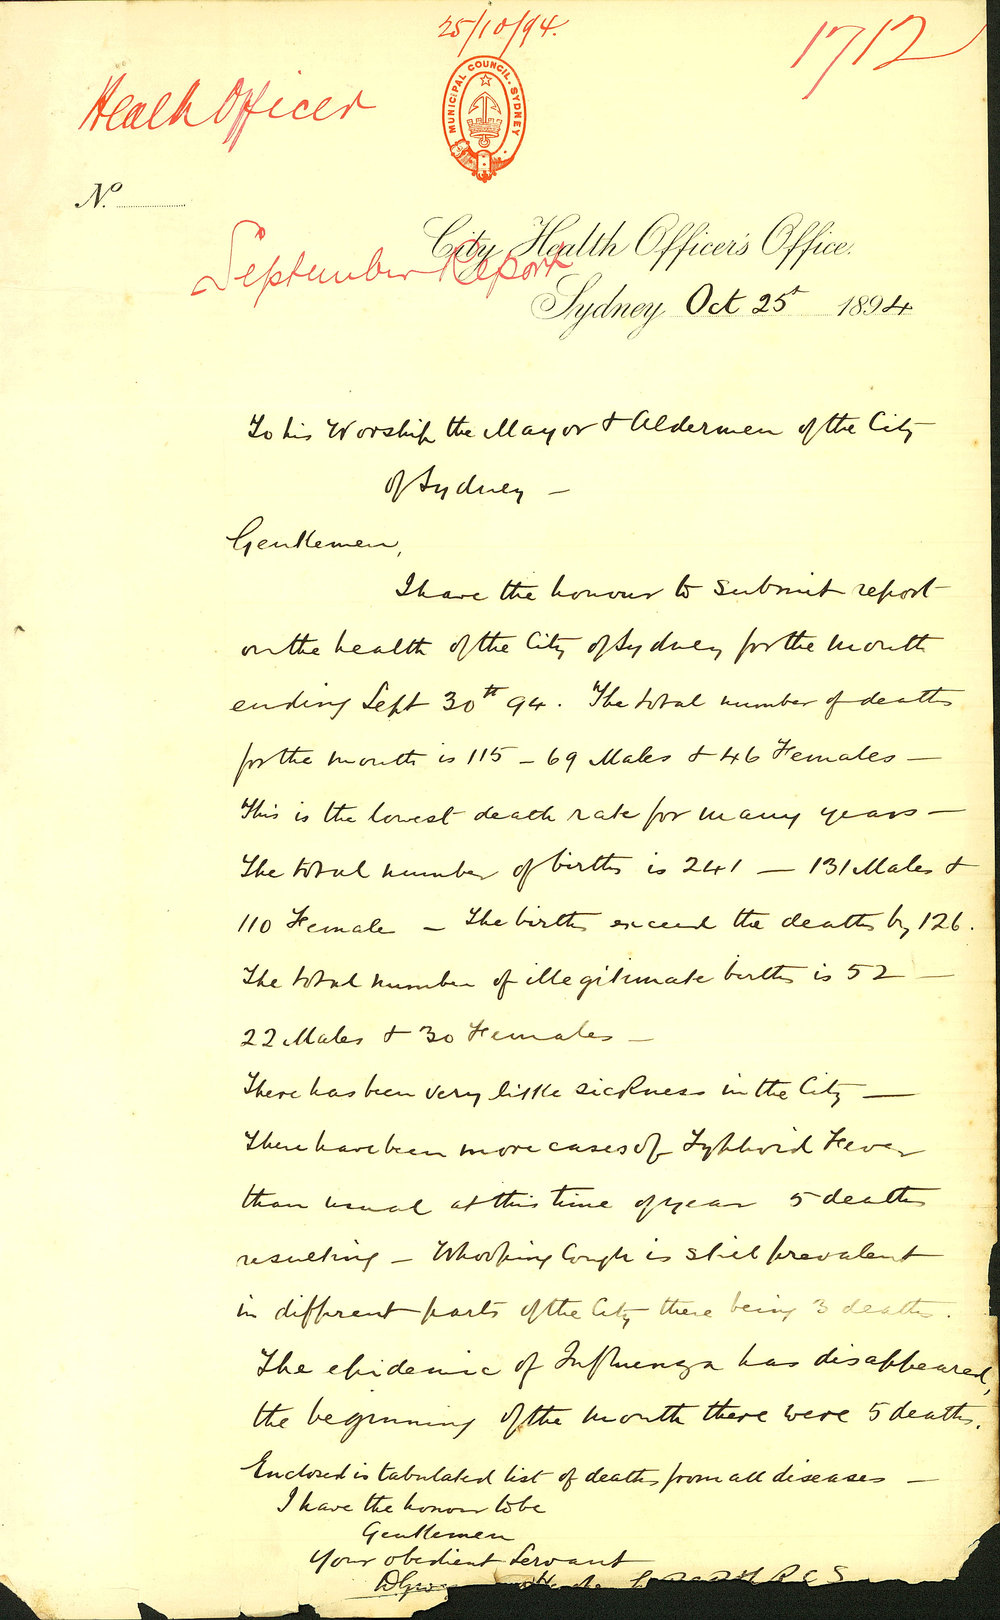 25/10/94.
1712
Health Officer
MUNICIPAL COUNCIL. SYDNEY
No.
City Health Officer's Office.
September Report
Sydney Oct 25t 1894
To his Worship the Mayor & Aldermen of the City
of Sydney —
Gentlemen,
I have the honour to submit report
on the health of the City of Sydney for the month
ending Sept 30th 94. The total number of deaths
for the month is 115 – 69 Males & 46 Females —
This is the lowest death rate for many years —
The total number of births is 241 — 131 Males &
110 Female – The births exceed the deaths by 126.
The total number of illegitimate births is 52 —
22 Males & 30 Females —
There has been very little sickness in the City —
There have been more cases of Typhoid Fever
than usual at this time of year 5 deaths
resulting – Whooping Cough is still prevalent
in different parts of the City there being 3 deaths.
The epidemic of Influenza has disappeared,
the beginning of the month there were 5 deaths.
Enclosed is tabulated list of deaths from all diseases —
I have the honour to be
Gentlemen
Your obedient Servant